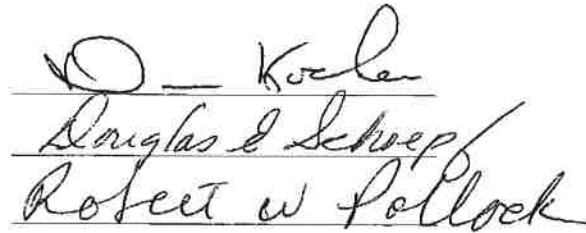 D — Kocher
Douglas E Schoep
Robert W Pollock